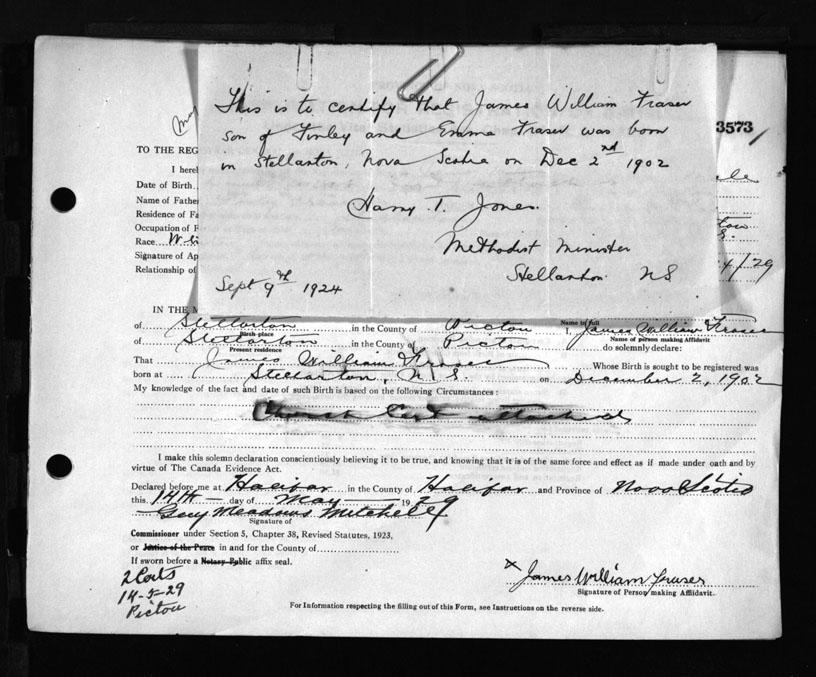 This is to certify that James William Fraser
son of Finley and Emma Fraser was born
in Stellarton, Nova Scotia on Dec 2nd 1902
Harry T. Jones.
Methodist Minister
Stellarton NS
Sept 9th 1924
3573
TO THE REG
I herel
Date of Birth
Name of Fathe
Residence of Fa
Occupation of F
Race
Signature of Ap
Relationship of
/29
IN THE M
of Stellarton in the County of Pictou I, James William Fraser
Birth-place Name in full
of Stellarton in the County of Pictou do solemnly declare:
Present residence Name of person making Affidavit
That James William Fraser Whose Birth is sought to be registered was
born at Stellarton, N.S. on December 2, 1902
My knowledge of the fact and date of such Birth is based on the following Circumstances :
Church Cert attached
I make this solemn declaration conscientiously believing it to be true, and knowing that it is of the same force and effect as if made under oath and by
virtue of The Canada Evidence Act.
Declared before me at Halifax in the County of Halifax and Province of Nova Scotia
this 14th day of May 1929
Meadows Mitchell
Signature of
Commissioner under Section 5, Chapter 38, Revised Statutes, 1923,
or Justice of the Peace in and for the County of
If sworn before a Notary Public affix seal.
2 Certs
14-5-29
Pictou
x James William Fraser
Signature of Person making Affidavit.
For Information respecting the filling out of this Form, see Instructions on the reverse side.